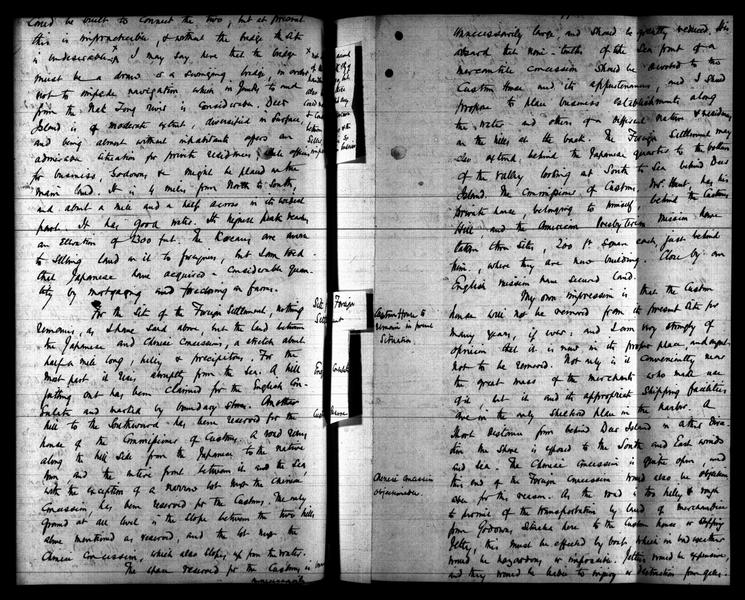 Could be built to connect the two, but at present
this is impracticable, & without the bridge the Site
is undesirable. I may say, here that the bridge
must be a draw or a swinging bridge, in order
not to impede navigation which in Junks to and
from the Nak Tong River is Considerable. Deer
Island is of moderate extent, diversified in Surface,
and being almost without inhabitants offers an
admirable situation for private residences, while offices
for business, Godowns & might be placed on the
main land. It is 4 miles from North to South,
and about a mile and a half across in its widest
part. It has good water. Its highest peak reaches
an elevation of 1300 feet. The Koreans are averse
to Selling land on it to foreigners, but I am told
that Japanese have acquired a Considerable quan-
tity by mortgaging and foreclosing on farms.
For the Site of the Foreign Settlement, nothing
remains, as I have said above, but the land between
the Japanese and Chinese Concessions, a stretch about
half a mile long, hilly & precipitous. For the
most part it rises abruptly from the Sea. A hill
jutting out has been claimed for the English Con-
sulate and marked by boundary stones. Another
hill to the Southward has been reserved for the
house of the Commissioner of Customs. A road runs
along the hill side from the Japanese to the native
town and the entire front between it and the Sea,
with the exception of a narrow lot near the Chinese
Concession, has been reserved for the Customs. The only
ground at all level is the slope between the two hills
above mentioned as reserved, and the lot near the
Chinese Concession, which also slopes up from the water.
The space reserved for the Customs is
unnecessarily
Foreign
unnecessarily large, and should be greatly reduced. It is
absurd that nine-tenths of the Sea front of a
mercantile concession Should be devoted to the
Custom House and its appurtenances, and I should
propose to place business establishments along
the water and others of a different nature & residences
on the hills at the back. The Foreign Settlement may
also extend, behind the Japanese quarter to the bottom
of the valley looking at South to Sea behind Deer
Island. The Commissioner of Customs, Mr Hunt, has his
private house, belonging to himself, behind the Customs
Hill and the American Presbyterian Mission have
taken three Sites, 200 ft Square each, just behind
him, where they are now building. Close by an
English mission have secured land.
My own impression is that the Custom
Custom House to
remain in present
Situation
house will not be removed from its present Site for
many years, if ever; and I am very strongly of
opinion that it is now in its proper place and ought
not to be removed. Not only is it conveniently near
the great mass of the merchants who made use
of it but it and its appropriate Shipping facilities
are in the only sheltered place in the harbor. A
short distance from behind Deer Island in either direc-
tion the shore is exposed to the South and East winds
and sea. The Chinese Concession is quite open, and
Chinese Concession
objectionable.
this end of the Foreign Concession would also be objection-
able for this reason. As the road is too hilly & rough
to permit of the transportation by land of merchandise
from Godowns situated here to the Custom house or Shipping
Jetty, this must be effected by boat which in bad weather
would be hazardous or impossible. Jetties would be expensive,
and they would be liable to injury or destruction from gales.